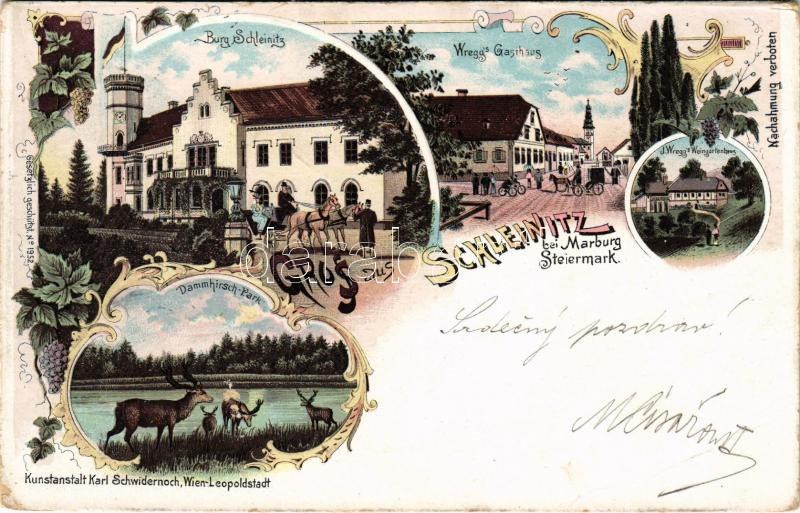 Burg Schleinitz
Wregg's Gasthaus
J. Wregg's Weingartenhaus
Nachahmung verboten
Gesetzlich geschützt. No 1952
Gruss aus
SCHLEINITZ
bei Marburg
Steiermark.
Dammhirsch-Park
Srdečný pozdrav!
Kunstanstalt Karl Schwidernoch, Wien-Leopoldstadt
darabanth